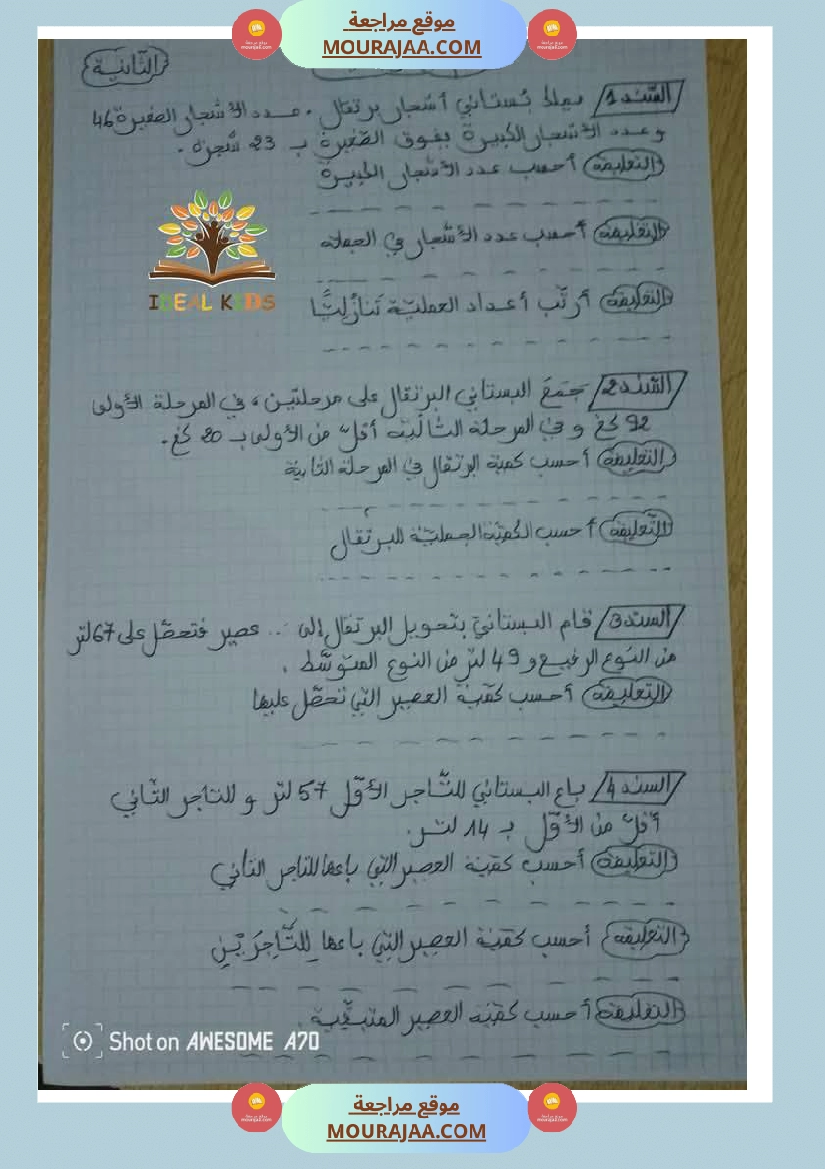 موقع مراجعة
MOURAJAA.COM
الثانية
السند 1 يملك بستاني أشجار برتقال . عدد الأشجار الصغيرة 46
وعدد الأشجار الكبيرة يفوق الصّغيرة بـ 23 شجرة .
التعليمة أحسب عدد الأشجار الكبيرة
التعليمة أحسب عدد الأشجار في الجملة
IDEAL KIDS
التعليمة أرتّب أعداد العمليّة تَنازُلِيًّا
السّند 2 جَمَعَ البستاني البرتقال على مرحلتين ، في المرحلة الأولى
92 كغ و في المرحلة الثانية أقلّ من الأولى بـ 20 كغ .
التعليمة أحسب كمية البرتقال في المرحلة الثانية
التّعليمة أحسب الكميّة الجمليّة للبرتقال
السند 3 قام البستانيّ بتحويل البرتقال إلى ... عصير فتحصّل على 67 لتر
من النّوع الرفيع و 49 لتر من النوع المتوسّط .
التعليمة أحسب كميّة العصير التي تحصّل عليها
السند 4 باع البستاني للتّاجر الأوّل 57 لتر و للتاجر الثّاني
أقلّ من الأوّل بـ 14 لتر .
التعليمة أحسب كميّة العصير التي باعها للتاجر الثاني
التعليمة أحسب كميّة العصير التي باعها لِلتَّاجِرَيْنِ
التعليمة أحسب كميّة العصير المتبقّية .
Shot on AWESOME A70
موقع مراجعة
MOURAJAA.COM